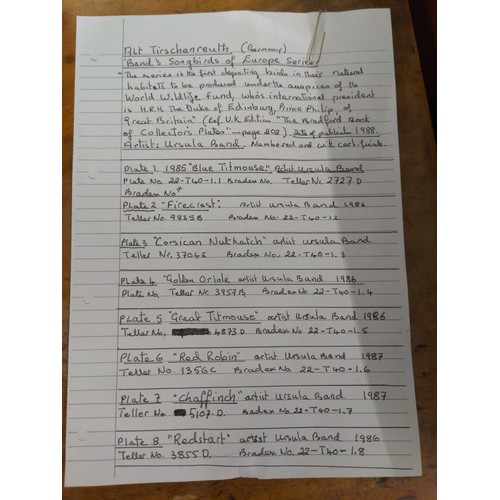 Alt Tirschenreuth (Germany)
'Band's Songbirds of Europe Series'
"The series is the first depicting birds in their natural
habitats to be produced under the auspices of the
World Wildlife Fund, who's international president
is H.R.H The Duke of Edinburg, Prince Philip, of
Great Britain" (ref. U.K. Edition "The Bradford Book
of Collector's Plates" - page 202). Date of publication 1988.
Artist: Ursula Band. Numbered and with certificate.
Plate 1. 1985 "Blue Titmouse." Artist Ursula Band
Plate No. 22-T40-1.1 Bradex No. Teller Nr. 2727 D
Bradex No↑
Plate 2 "Firecrest: Artist Ursula Band 1986
Teller No. 9835B Bradex No. 22-T40-1.2
Plate 3 "Corsican Nuthatch" artist Ursula Band
Teller Nr. 3704E Bradex No. 22-T40-1.3
Plate 4 "Golden Oriole artist Ursula Band 1986
Plate No. Teller Nr. 3957B Bradex No. 22-T40-1.4
Plate 5 "Great Titmouse" artist Ursula Band 1986
Teller No. 4873 D Bradex No. 22-T40-1.5
Plate 6 "Red Robin" artist Ursula Band 1987
Teller No. 1356C Bradex No. 22-T40-1.6
Plate 7 "Chaffinch" artist Ursula Band 1987
Teller No 5107.D. Badex No. 22-T40-1.7
Plate 8 "Redstart" artist Ursula Band 1986
Teller No. 3855D. Bradex No. 22-T40-1.8